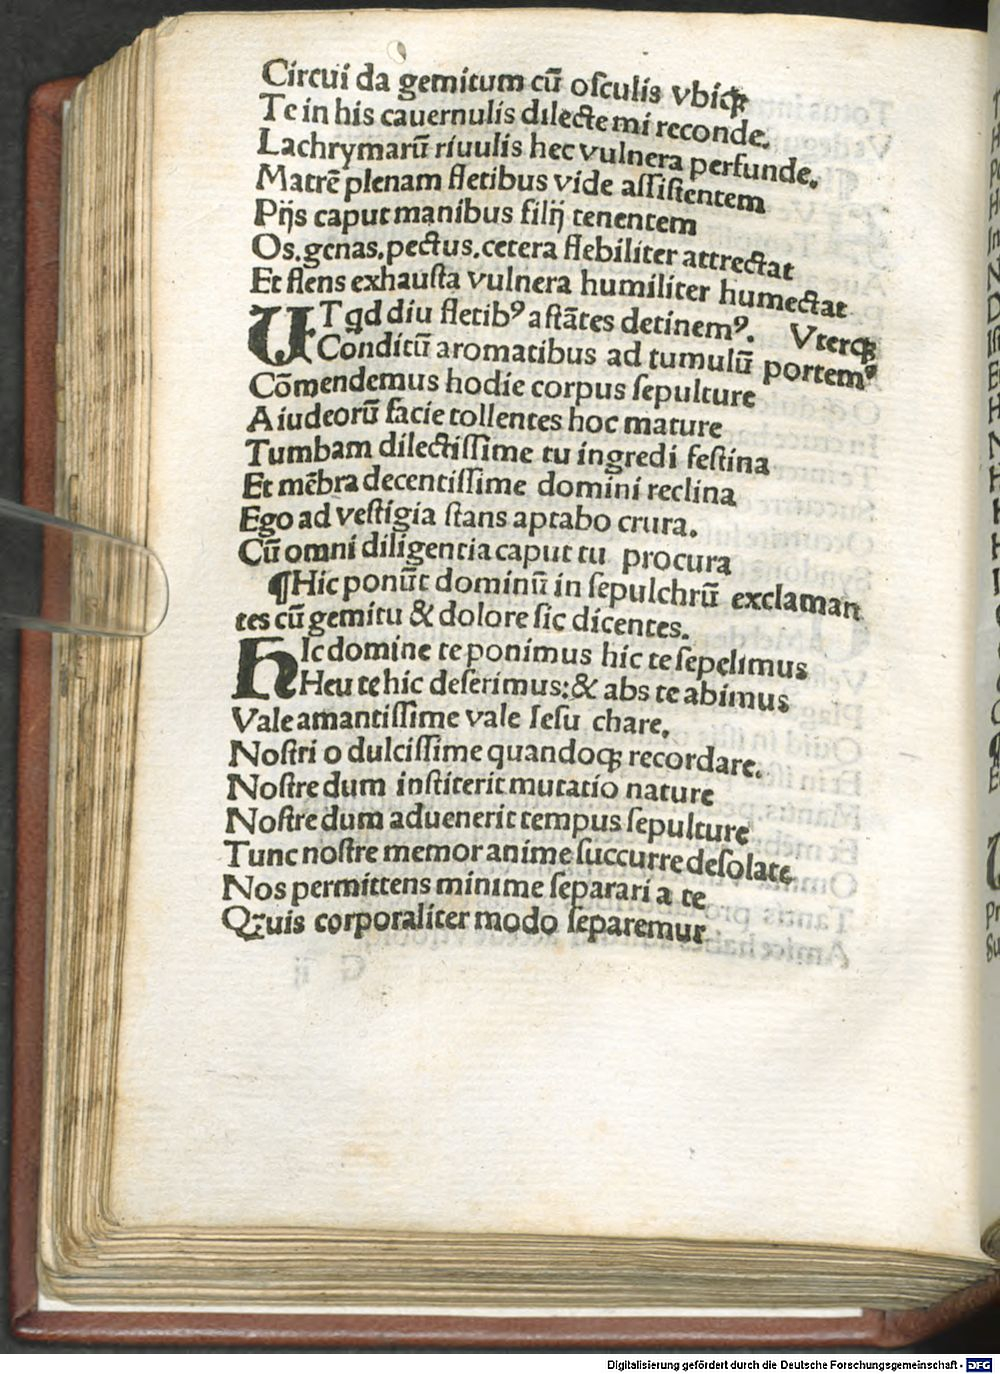 Circui da gemitum cū osculis vbiqꝫ
Te in his cauernulis dilecte mi reconde.
Lachrymarū riuulis hec vulnera perfunde.
Matrē plenam fletibus vide aſſiſtentem
Pijs caput manibus filij tenentem
Os.genas.pectus.cetera flebiliter attrectat
Et flens exhauſta vulnera humiliter humectat
UT qd diu fletibꝰ aſtātes detinemꝰ. Vterqꝫ
Cōnditū aromatibus ad tumulū portemꝰ
Cōmendemus hodie corpus ſepulture
A iudeorū facie tollentes hoc mature
Tumbam dilectiſſime tu ingredi feſtina
Et mēbra decentiſſime domini reclina
Ego ad veſtigia ſtans aptabo crura.
Cū omni diligentia caput tu procura
¶Hic ponūt dominū in ſepulchrū exclaman
tes cū gemitu & dolore ſic dicentes.
HIc domine te ponimus hic te ſepelimus
Heu te hic deſerimus:& abs te abimus
Vale amantiſſime vale Ieſu chare.
Noſtri o dulciſſime quandoqꝫ recordare.
Noſtre dum inſtiterit mutatio nature
Noſtre dum aduenerit tempus ſepulture
Tunc noſtre memor anime ſuccurre deſolate
Nos permittens minime ſeparari a te
Qꝫuis corporaliter modo ſeparemur
Digitalisierung gefördert durch die Deutsche Forschungsgemeinschaft - DFG